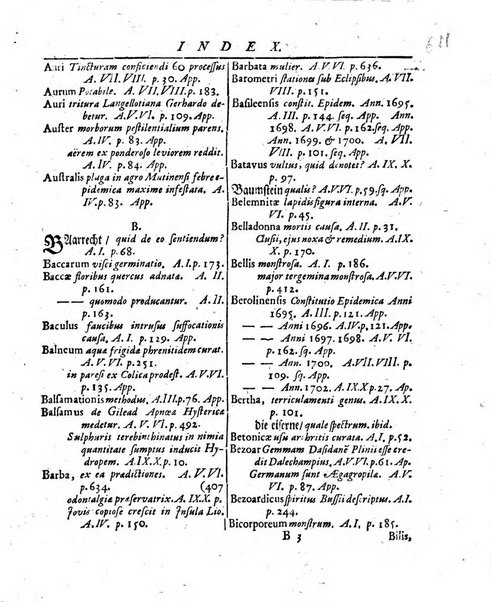 INDEX.
Auri Tincturam conficiendi 60 processus
A. VII. VIII. p. 30. App.
Aurum Potabile. A. VII. VIII. p. 183.
Auri tritura Langellotiana Gerhardo de-
betur. A. V. VI. p. 109. App.
Auster morborum pestilentialium parens.
A. IV. p. 83. App.
aërem ex ponderoso leviorem reddit.
A. IV. p. 84. App.
Australis plaga in agro Mutinensi febre e-
pidemica maxime infestata. A.
IV. p. 83. App.
B.
Baarrecht / quid de eo sentiendum?
A. I. p. 68.
Baccarum visci germinatio. A. I. p. 173.
Baccæ floribus quercus adnata. A. II.
p. 161.
—— quomodo producantur. A. II.
p. 163.
Baculus faucibus intrusus suffocationis
causa. A. II. p. 123.
Balneum aqua frigidæ phrenitidem curat.
A. V. VI. p. 251.
in paresi ex Colica prodest. A. V. VI.
p. 135. App.
Balsamationis methodus. A. III. p. 76. App.
Balsamus de Gilead Apnœa Hystericæ
medetur. A. V. VI. p. 492.
Sulphuris terebinthinatus in nimia
quantitate sumptus induxit Hy-
dropem. A. IX. X. p. 10.
Barba, ex ea prædictiones. A. V. VI.
p. 634. (407
odontalgiæ præservatrix. A. IX. X. p.
Jovis copiose crescit in Insula Lio.
A. IV. p. 150.
Barbata mulier. A. V. VI. p. 636.
Barometri stationes sub Eclipsibus. A. VII.
VIII. p. 151.
Basileensis constit. Epidem. Ann. 1695.
A. III. p. 144. seq. App. Ann.
1698. A. V. VI. p. 162. seq. App.
Ann. 1699. & 1700. A. VII.
VIII. p. 101. seq. App.
Batavus vulius, quid denotet? A. IX. X.
p. 97.
Baumstein qualis? A. V. VI. p. 59. sq. App.
Belemnitæ lapidis figura interna. A. V.
VI. p. 45.
Belladonna mortis causa. A. II. p. 31.
Clusii, ejus noxa & remedium. A. IX.
X. p. 170.
Bellis monstrosa. A. I. p. 186.
major tergemina monstrosa. A. V. VI.
p. 412.
Berolinensis Constitutio Epidemica Anni
1695. A. III. p. 121. App.
—— Anni 1696. A. IV. p. 121. App.
—— Anni 1697. 1698. A. V. VI.
p. 162. sq. App.
—— Ann. 1700. A. VII. VIII. p.
109. sq. App.
—— Ann. 1702. A. IX. X. p. 27. Ap.
Bertha, terriculamenti genus. A. IX. X.
p. 101.
die eiserne / quale spectrum. ibid.
Betonicæ usu arthritis curata. A. I. p. 52.
Bezoar Gemmam Dasideni Plinii esse cre-
dit Dalechampius. A. V. VI. p. 61. Ap.
Germanum sunt Ægagropilæ. A. V.
VI. p. 87. App.
Bezoardicus spiritus Bussii descriptus. A. I.
p. 244.
Bicorporeum monstrum. A. I. p. 185.
B 3
Bilis,